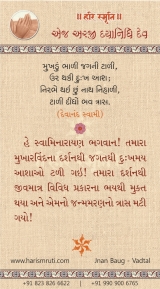 ॥ હરિ સ્મૃતિ ॥
એજ અરજી દયાનિધિ દેવ
મુખડું ભાળી જગની ટાળી,
ઉર થકી દુઃખ આશ;
નિરભે થઈ છું નાથ નિહાળી,
ટાળી દીધો ભવ ત્રાસ.
(દેવાનંદ સ્વામી)
હે સ્વામિનારાયણ ભગવાન! તમારા
મુખારવિંદના દર્શનથી જગતની દુઃખમય
આશાઓ ટળી ગઈ! તમારા દર્શનથી
જીવમાત્ર વિવિધ પ્રકારના ભયથી મુક્ત
થયા અને એમનો જન્મમરણનો ત્રાસ મટી
ગયો!
www.harismruti.com
Jnan Baug - Vadtal
+91 823 826 6622
+91 990 900 6765